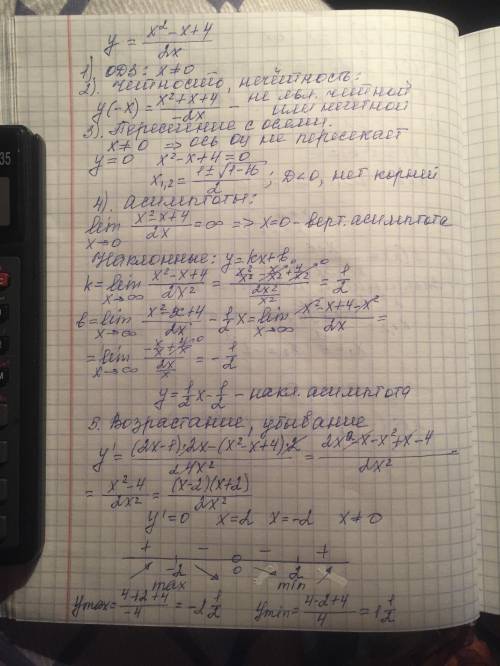 y = (x² - x + 4) / 2x
1) ОДЗ: x ≠ 0
2). Чётность, нечётность:
y(-x) = (x² + x + 4) / -2x - не явл. чётной или нечётной
3). Пересечение с осями.
x ≠ 0 => ось oy не пересекает
y = 0 x² - x + 4 = 0
x₁,₂ = (1 ± √(1-16)) / 2 ; D<0, нет корней
4). асимптоты:
lim x→0 (x² - x + 4) / 2x = ∞ => x=0 - верт. асимптота
Наклонные: y = kx + b.
k = lim x→∞ (x² - x + 4) / 2x² = (x²/x² - x/x² + 4/x²) / (2x²/x²) = 1/2
b = lim x→∞ (x² - x + 4) / 2x - 1/2 x = lim x→∞ (x² - x + 4 - x²) / 2x =
= lim x→∞ (-x/x + 4/x) / (2x/x) = -1/2
y = 1/2 x - 1/2 - накл. асимптота
5. Возрастание, убывание
y' = ((2x-1)·2x - (x² - x + 4)·2) / 4x² = (2x² - x - x² + x - 4) / 2x²
= (x² - 4) / 2x² = (x-2)(x+2) / 2x²
y' = 0 x = 2 x = -2 x ≠ 0
+ - - +
-2 0 2
max min
ymax = (4+2+4) / -4 = -2 1/2 ymin = (4-2+4) / 4 = 1 1/2
35